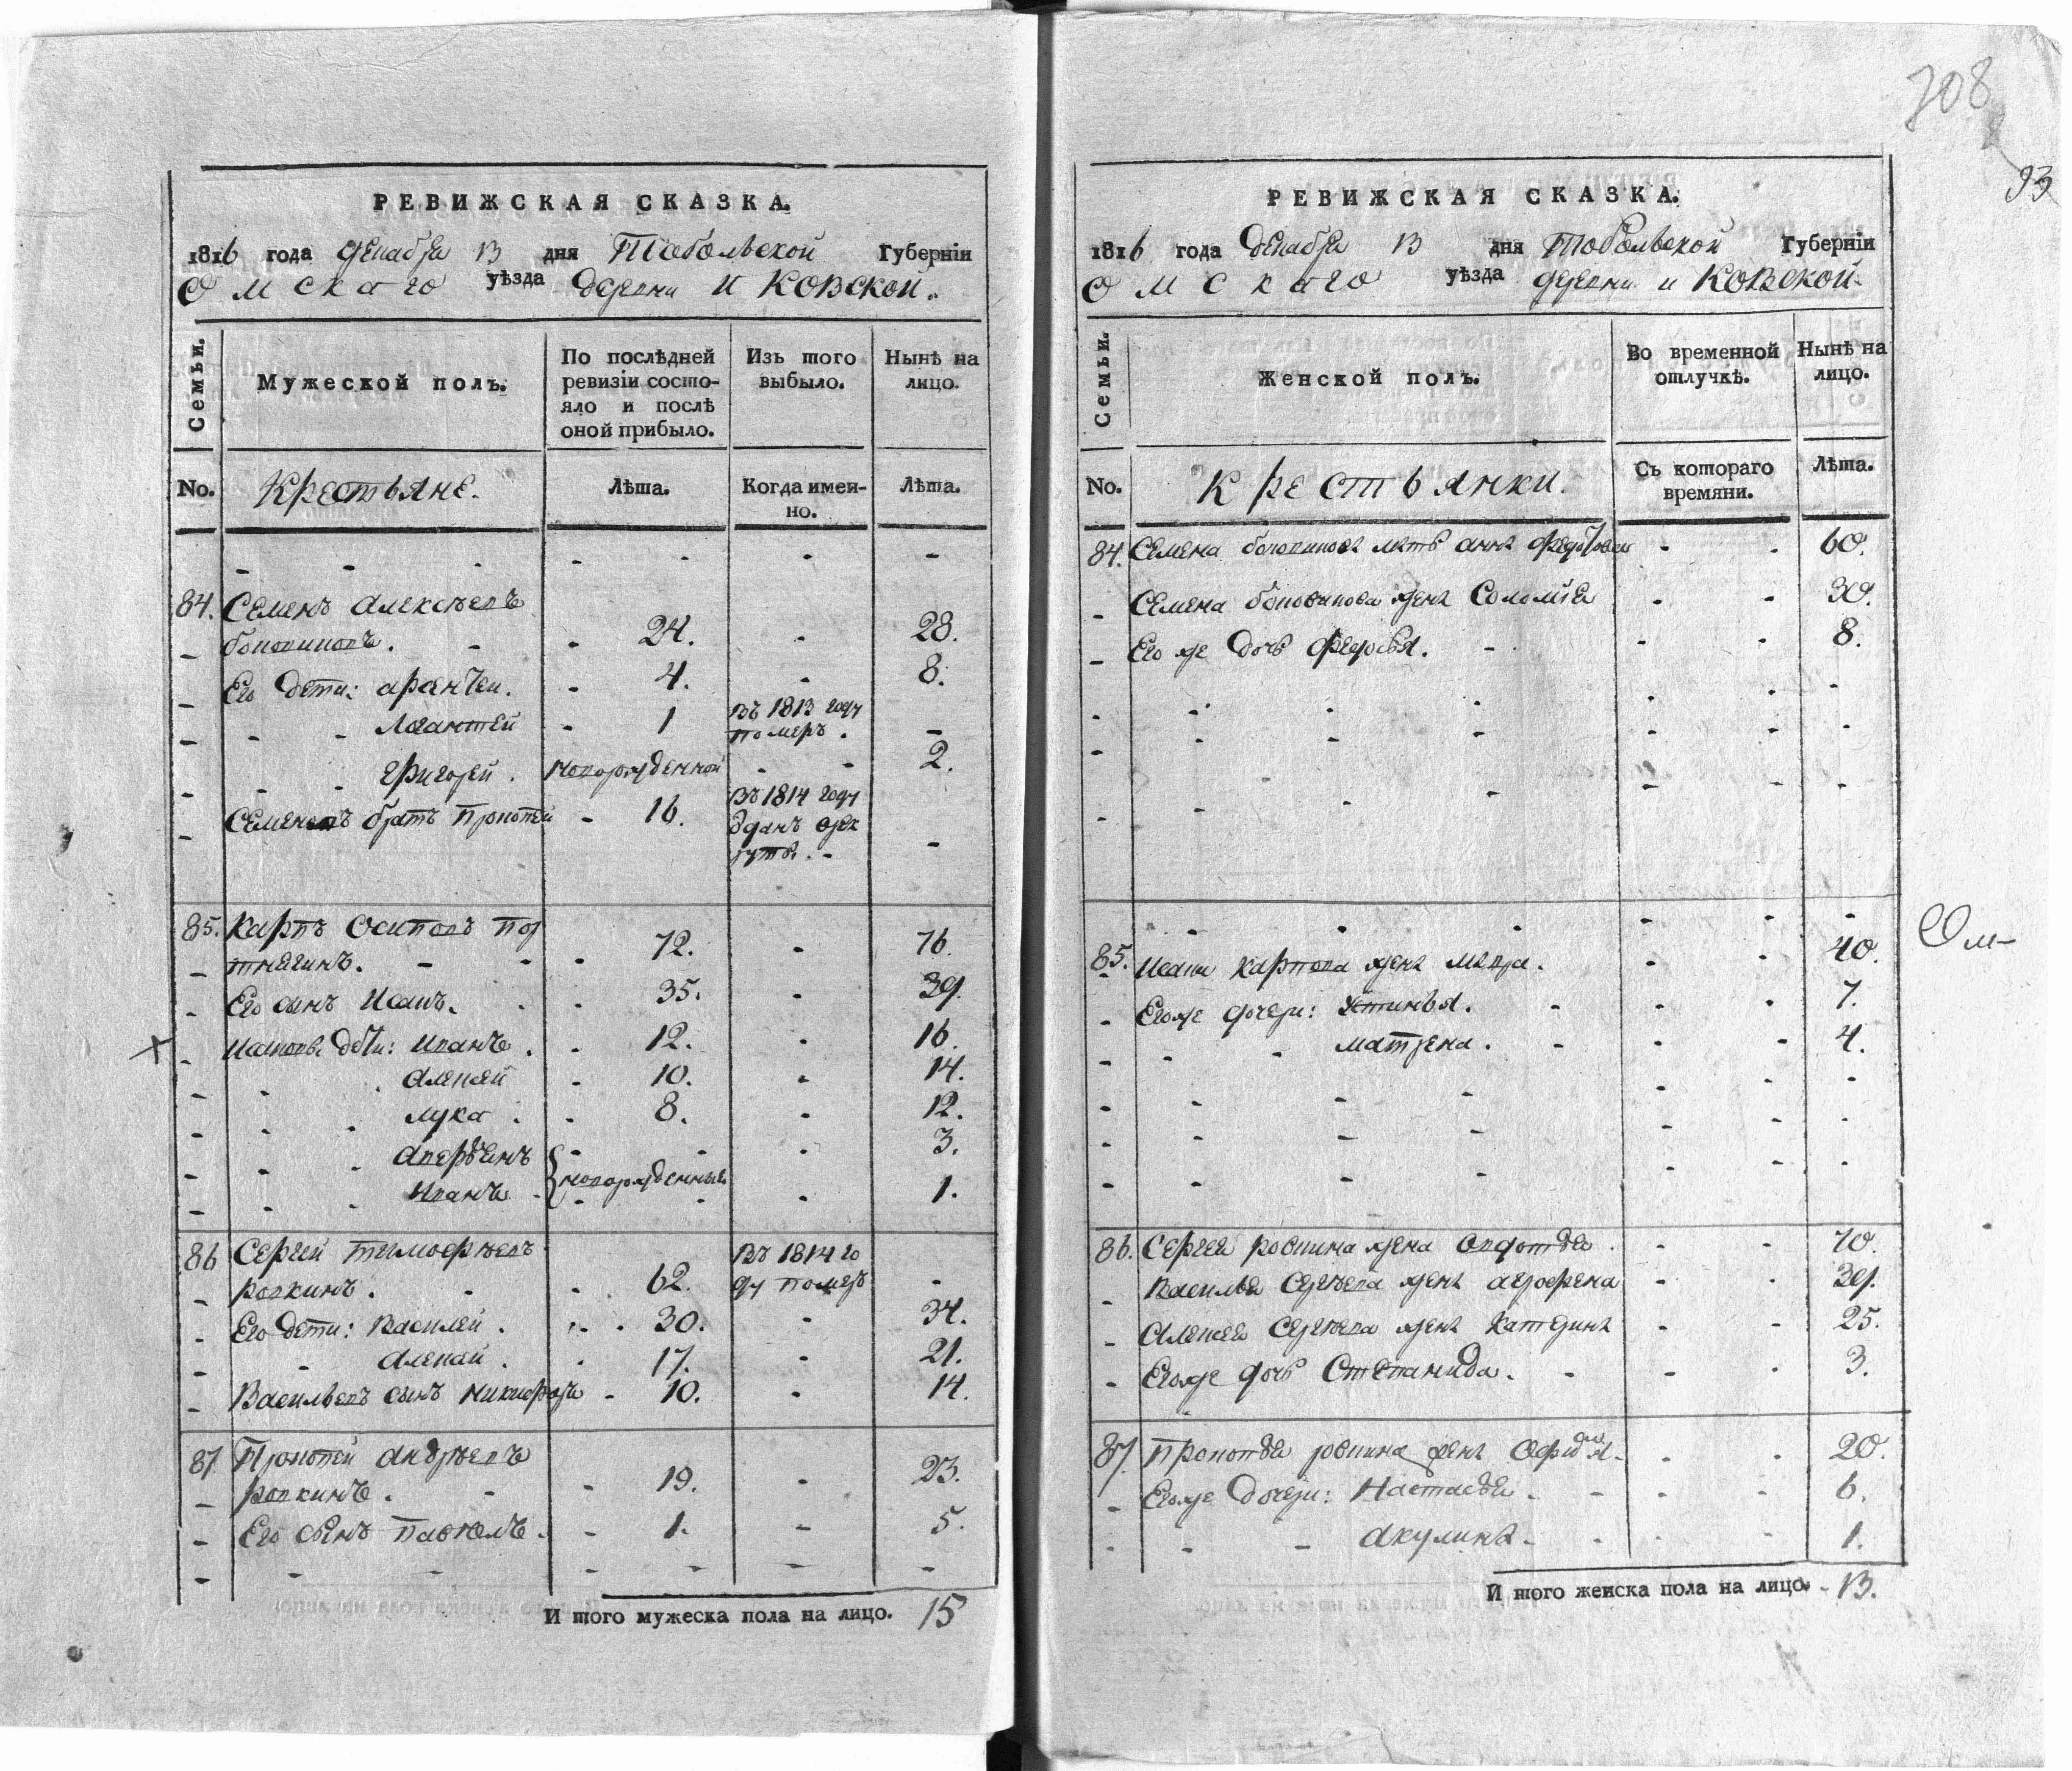 708
93
РЕВИЖСКАЯ СКАЗКА.
1816 года Декабря 13 дня Тобольской Губерніи
Омскаго уѣзда деревни Иковской.
Семьи.
Мужеской полъ.
По послѣдней ревизіи состояло и послѣ оной прибыло.
Изъ того выбыло.
Нынѣ на лицо.
No. Крестьяне. Лѣта. Когда именно. Лѣта.
84. Семенъ Алексѣевъ
24. 28.
Его дети: 4. 8.
1 Въ 1813 году померъ.
Григорей. новорожденной 2.
Семеновъ братъ 16. Въ 1814 году
85. Карпъ Осиповъ Пор
тнягинъ. 72. 76.
Его сынъ 35. 39.
дети: Иванъ. 12. 16.
Алексей 10. 14.
Лука. 8. 12.
3.
Иванъ новорожденные 1.
86 Сергей Тимофѣевъ
Ровкинъ. 62. Въ 1814 году померъ
Его дети: Василей. 30. 34.
Алексей. 17. 21.
Васильевъ сынъ Никифоръ 10. 14.
87 Андрѣевъ
Ровкинъ. 19. 23.
Его сынъ Павелъ. 1. 5.
И того мужеска пола на лицо. 15
РЕВИЖСКАЯ СКАЗКА.
1816 года Декабря 13 дня Тобольской Губерніи
Омскаго уѣзда деревни Иковской.
Семьи.
Женской полъ.
Во временной отлучкѣ.
Нынѣ на лицо.
No. Крестьянки. Съ котораго времяни. Лѣта.
84. Семена мать Анна 60.
Семена жена 30.
Его же дочь 8.
85. Карпова жена 40.
Его же дочери: Устинья. 7.
Матрена. 4.
Ом-
86. Сергея жена Овдотья 70.
Василья Сергѣева жена Агрофена 39.
Алексея Сергѣева жена Катерина 25.
Его же дочь Степанида. 3.
87 жена 20.
Его же дочери: Настасья. 6.
Акулина. 1.
И того женска пола на лицо. 13.